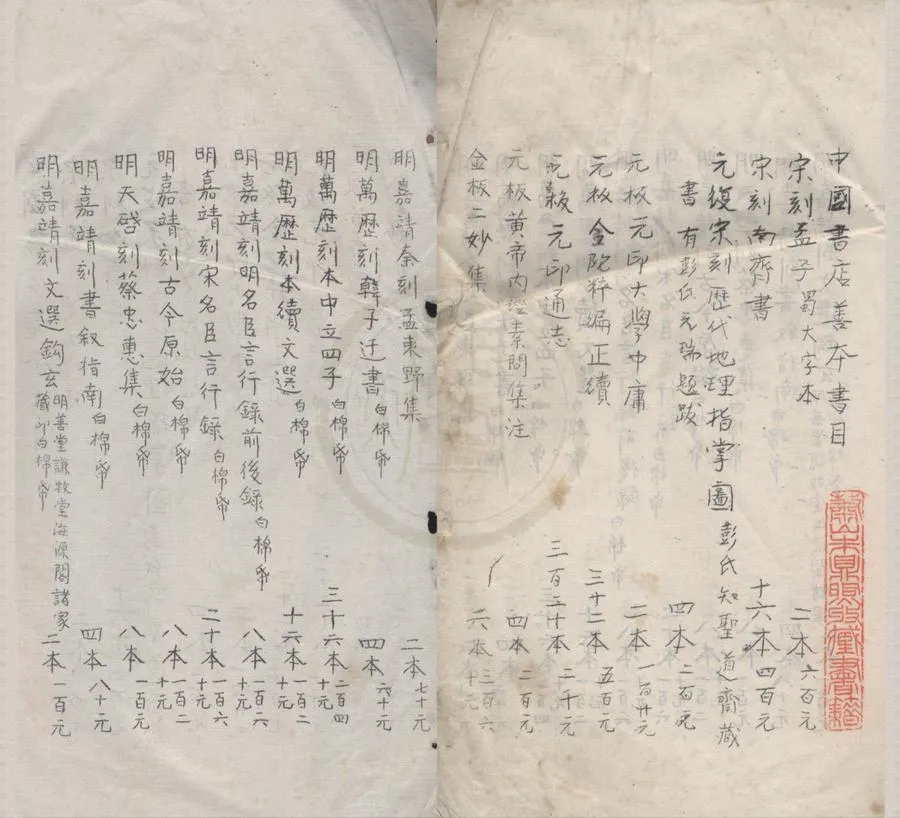 中國書店善本書目
宋刻孟子 蜀大字本 二本 六百元
宋刻南齊書 十六本 四百元
元復宋刻歷代地理指掌圖 彭氏知聖道齋藏
書 有彭氏元瑞題跋 四本 二百元
元板元印大學中庸 二本 一百廿元
元板金陀粹編正續 三十二本 五百元
元板元印通志 三百二十本 二千元
元板黄帝内經素問集注 四本 二百元
金板二妙集 六本 三百六十元
明嘉靖秦刻孟東野集 二本 七十元
明萬歷刻韓子迂書 白棉帋 四本 六十元
明萬歷刻本中立四子 白棉帋 三十六本 二百四十元
明萬歷刻本續文選 白棉帋 十六本 一百二十元
明嘉靖刻明名臣言行錄前後錄 白棉帋 八本 一百六十元
明嘉靖刻宋名臣言行錄 白棉帋 二十本 一百六十元
明嘉靖刻古今原始 白棉帋 八本 一百二十元
明天啓刻蔡忠惠集 白棉帋 八本 一百元
明嘉靖刻書敘指南 白棉帋 四本 八十元
明嘉靖刻文選鈎玄 明善堂謙牧堂海源閣諸家藏印白棉帋 二本 一百元